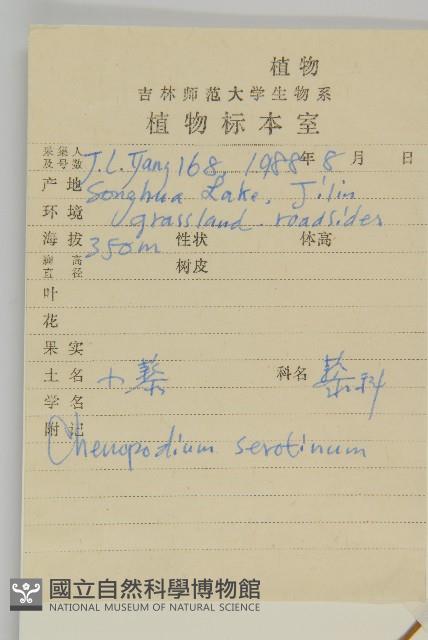 植物
吉林师范大学生物系
植物标本室
采集人及号数 J.L. Yang 168, 1988年 8月 日
产地 Songhua Lake, Jilin
环境 grassland roadsides
海拔 350m 性状 体高
胸高直径 树皮
叶
花
果实
土名 小藜 科名 藜科
学名
附记 Chenopodium serotinum
國立自然科學博物館
NATIONAL MUSEUM OF NATURAL SCIENCE